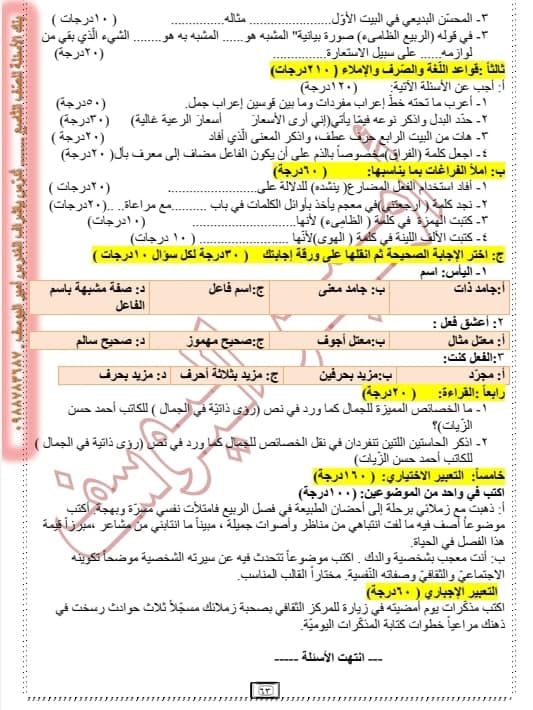 ٣- المحسّن البديعي في البيت الأوّل...................... مثاله.............. ( ١٠درجات )
٣- في قوله (الربيع الظامىء) صورة بيانية" المشبه هو...... المشبه به هو........ الشيء الّذي بقي من
لوازمه...... على سبيل الاستعارة............. (٢٠درجة)
ثالثاً :قواعد اللّغة والصّرف والإملاء ( ٢١٠درجات)
أ: أجب عن الأسئلة الآتية: (١٢٠درجة )
١- أعرب ما تحته خطّ إعراب مفردات وما بين قوسين إعراب جمل. (٥٠درجة)
٢- حدّد البدل واذكر نوعه فيمَا يأتي(إني أرى الأسعارَ أسعارَ الرعية غالية) (٣٠درجة )
٣- هات من البيت الرابع حرف عطف، واذكر المعنى الّذي أفاد (٢٠درجة )
٤- اجعل كلمة (الفراق)مخصوصاً بالذم على أن يكون الفاعل مضاف إلى معرف بأل( ٢٠درجة )
ب: املأ الفراغات بما يناسبها: ( ٦٠درجة)
١- أفاد استخدام الفعل المضارع( ينشده) للدلالة على........................ (٢٠درجات )
٢- نجد كلمة ( ارجعتني)في معجم يأخذ بأوائل الكلمات في باب ........مع مراعاة.. ..(٢٠درجات)
٣- كتبت الهمزة في كلمة ( الظامىء) لأنها.................... (١٠درجات)
٤- كتبت الألف اللينة في كلمة ( الهوى)لأنّها ................ ( ١٠ درجات )
ج: اختر الإجابة الصحيحة ثم انقلها على ورقة إجابتك ( ٣٠درجة لكل سؤال ١٠درجات )
١- اليأس: اسم
أ:جامد ذات ب: جامد معنى ج:اسم فاعل د: صفة مشبهة باسم الفاعل
٢: أعشق فعل :
أ: معتل مثال ب:معتل أجوف ج:صحيح مهموز د: صحيح سالم
٣:الفعل كنت:
أ: مجرّد ب:مزيد بحرفين ج: مزيد بثلاثة أحرف د: مزيد بحرف
رابعاً :القراءة: ( ٢٠درجة)
١- ما الخصائص المميزة للجمال كما ورد في نص (رؤى ذاتيّة في الجمال ) للكاتب أحمد حسن
الزيّات)؟
٢- اذكر الحاستين اللتين تنفردان في نقل الخصائص للجمال كما ورد في نص (رؤى ذاتية في الجمال )
للكاتب أحمد حسن الزّيات )
خامساً: التعبير الاختياري: ( ١٦٠درجة)
اكتب في واحد من الموضوعين: (١٠٠درجة)
أ: ذهبت مع زملائي برحلة إلى أحضان الطبيعة في فصل الربيع فامتلأت نفسي مسرّة وبهجة. أكتب
موضوعاً أصف فيه ما لفت انتباهي من مناظر وأصوات جميلة ، مبيناً ما انتابني من مشاعر ،مبرزاً قيمة
هذا الفصل في الحياة.
ب: أنت معجب بشخصية والدك . اكتب موضوعاً تتحدث فيه عن سيرته الشخصية موضحاً تكوينه
الاجتماعيّ والثقافيّ وصفاته النّفسية. مختاراً القالب المناسب.
التعبير الإجباري ( ٦٠درجة)
اكتب مذكّرات يوم أمضيته في زيارة للمركز الثقافي بصحبة زملائك مسجّلاً ثلاث حوادث رسخت في
ذهنك مراعياً خطوات كتابة المذكّرات اليوميّة.
--- انتهت الأسئلة -----
٦٣